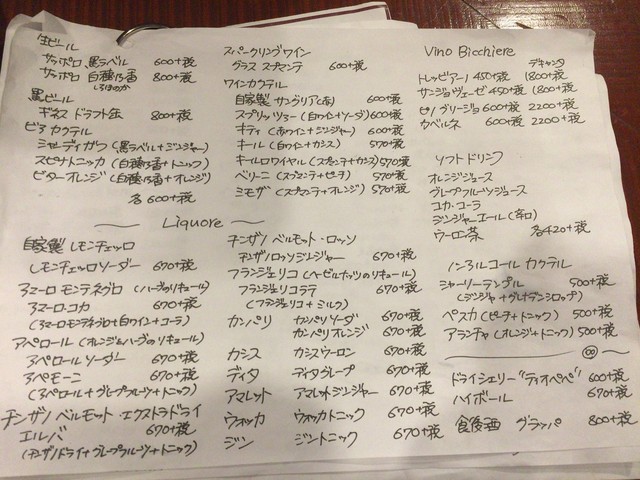 生ビール
サッポロ 黒ラベル 600+税
サッポロ 白穂乃香 800+税
しろほのか
黒ビール
ギネス ドラフト缶 800+税
ビアカクテル
シャーディガフ (黒ラベル+ジンジャー)
スピナトニッカ (白穂乃香+トニック)
ビターオレンジ (白穂乃香+オレンジ)
各600+税
スパークリングワイン
グラス スプマンテ 600+税
ワインカクテル
自家製 サングリア(赤) 600+税
スプリッツァー (白ワイン+ソーダ) 600+税
キティ (赤ワイン+ジンジャー) 600+税
キール (白ワイン+カシス) 570+税
キールロワイヤル (スプマンテ+カシス) 570+税
ベリーニ (スプマンテ+ピーチ) 570+税
ミモザ (スプマンテ+オレンジ) 570+税
Vino Bicchiere
デキャンタ
トレッビアーノ 450+税 1800+税
サンジョヴェーゼ 450+税 1800+税
ピノグリージョ 600+税 2200+税
カベルネ 600+税 2200+税
ソフトドリンク
オレンジジュース
グレープフルーツジュース
コカ・コーラ
ジンジャーエール(辛口)
ウーロン茶 各420+税
ノンアルコール カクテル
シャーリーテンプル 500+税
(ジンジャー+グレナデンシロップ)
ペスカ (ピーチ+トニック) 500+税
アランチャ (オレンジ+トニック) 500+税
ドライシェリー "ティオペペ" 600+税
ハイボール 670+税
食後酒 グラッパ 800+税
Liquore
自家製 レモンチェッロ
レモンチェッロソーダー 670+税
アマーロ モンテネグロ (ハーブのリキュール)
アマーロ・コカ 670+税
(アマーロモンテネグロ+白ワイン+コーラ)
アペロール (オレンジ&ハーブのリキュール)
アペロールソーダー 670+税
アペモーニ 670+税
(アペロール+グレープフルーツ+トニック)
チンザノ ベルモット・エクストラドライ
エルバ 670+税
(チンザノドライ+グレープフルーツ+トニック)
チンザノ ベルモット・ロッソ
チンザノロッソジンジャー 670+税
フランジェリコ (ヘーゼルナッツのリキュール)
フランジェリコラテ 670+税
(フランジェリコ+ミルク)
カンパリ カンパリソーダ 670+税
カンパリオレンジ 670+税
カシス カシスウーロン 670+税
ディタ ディタグレープ 670+税
アマレット アマレットジンジャー 670+税
ウォッカ ウォッカトニック 670+税
ジン ジントニック 670+税